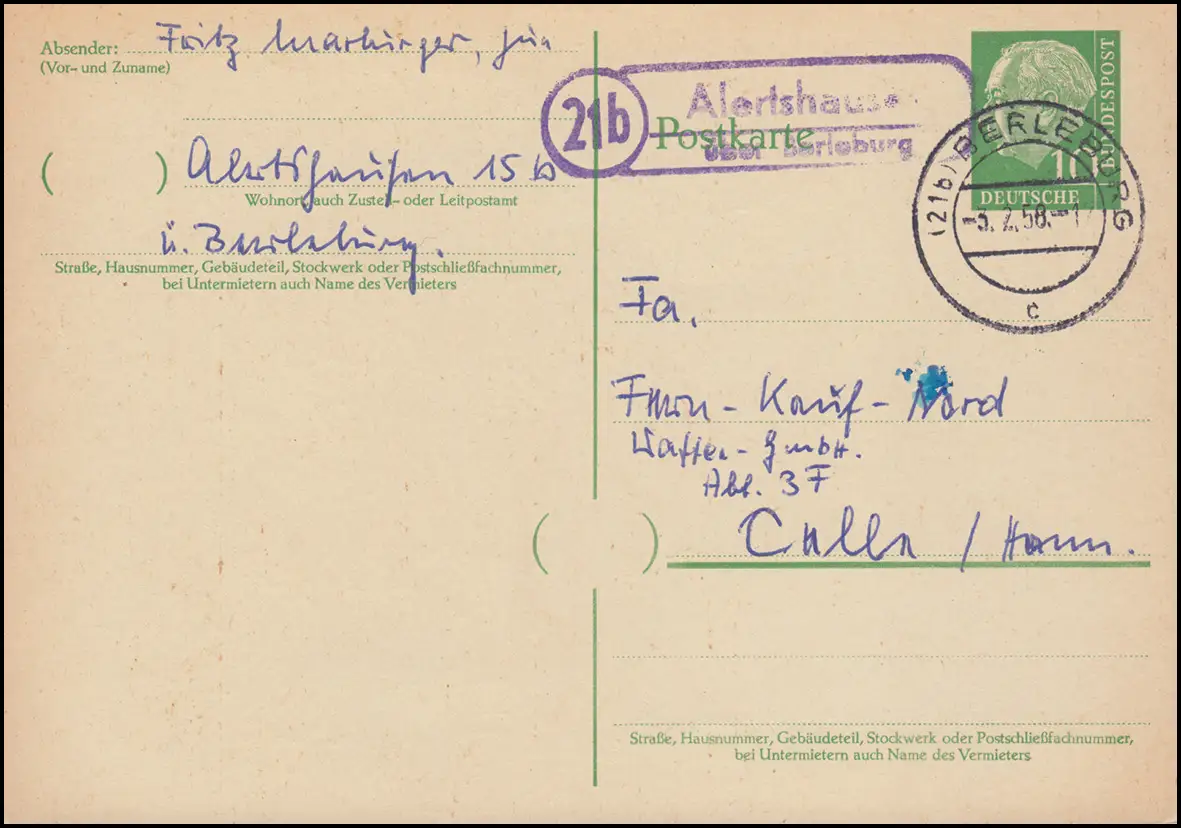 Absender: Fritz Marburger, jun
(Vor- und Zuname)
( ) Alertshausen 15 b
Wohnort, auch Zustell- oder Leitpostamt
ü. Berleburg.
Straße, Hausnummer, Gebäudeteil, Stockwerk oder Postschließfachnummer,
bei Untermietern auch Name des Vermieters
21b
Alertshausen
Postkarte
über Berleburg
BUNDESPOST
10
DEUTSCHE
(21b) BERLEBURG
-3.2.58.-1
c
Fa.
Kauf - Nord
Waffen - GmbH.
Abt. 3F
( ) Celle / Hann.
Straße, Hausnummer, Gebäudeteil, Stockwerk oder Postschließfachnummer,
bei Untermietern auch Name des Vermieters